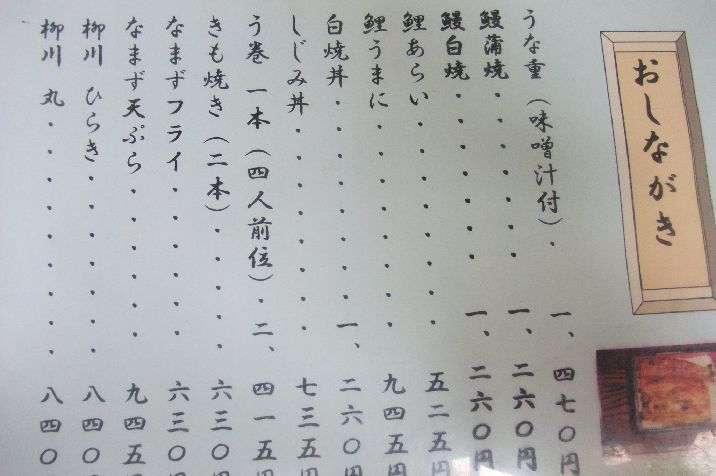 おしながき
うな重（味噌汁付）・一、四七〇円
鰻蒲焼・・・・・・一、二六〇円
鰻白焼・・・・・・一、二六〇円
鯉あらい・・・・・・・五二五円
鯉うまに・・・・・・・九四五円
白焼丼・・・・・・一、二六〇円
しじみ丼・・・・・・・七三五円
う巻 一本（四人前位）・二、四一五円
きも焼き（二本）・・・・六三〇円
なまずフライ・・・・・六三〇円
なまず天ぷら・・・・・九四五円
柳川 ひらき・・・・・・八四〇円
柳川 丸・・・・・・・・八四〇